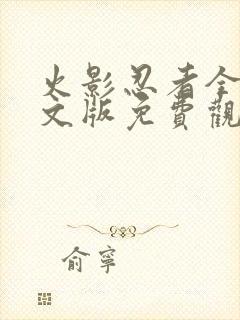 火影忍者全
文版免費觀
俞寧